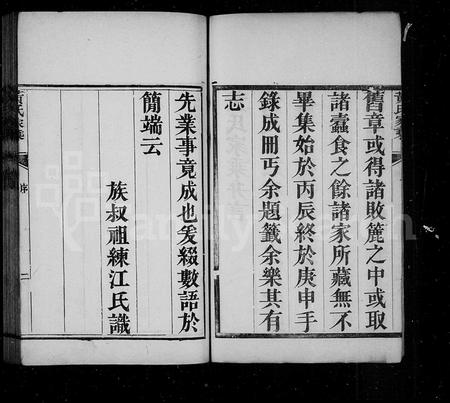 舊章或得諸敗簏之中或取
諸蠹食之餘諸家所藏無不
畢集始於丙辰終於庚申手
錄成冊丐余題籤余樂其有
志
先業事竟成也爰綴數語於
簡端云
族叔祖練江氏識
黃氏家乘
序
二